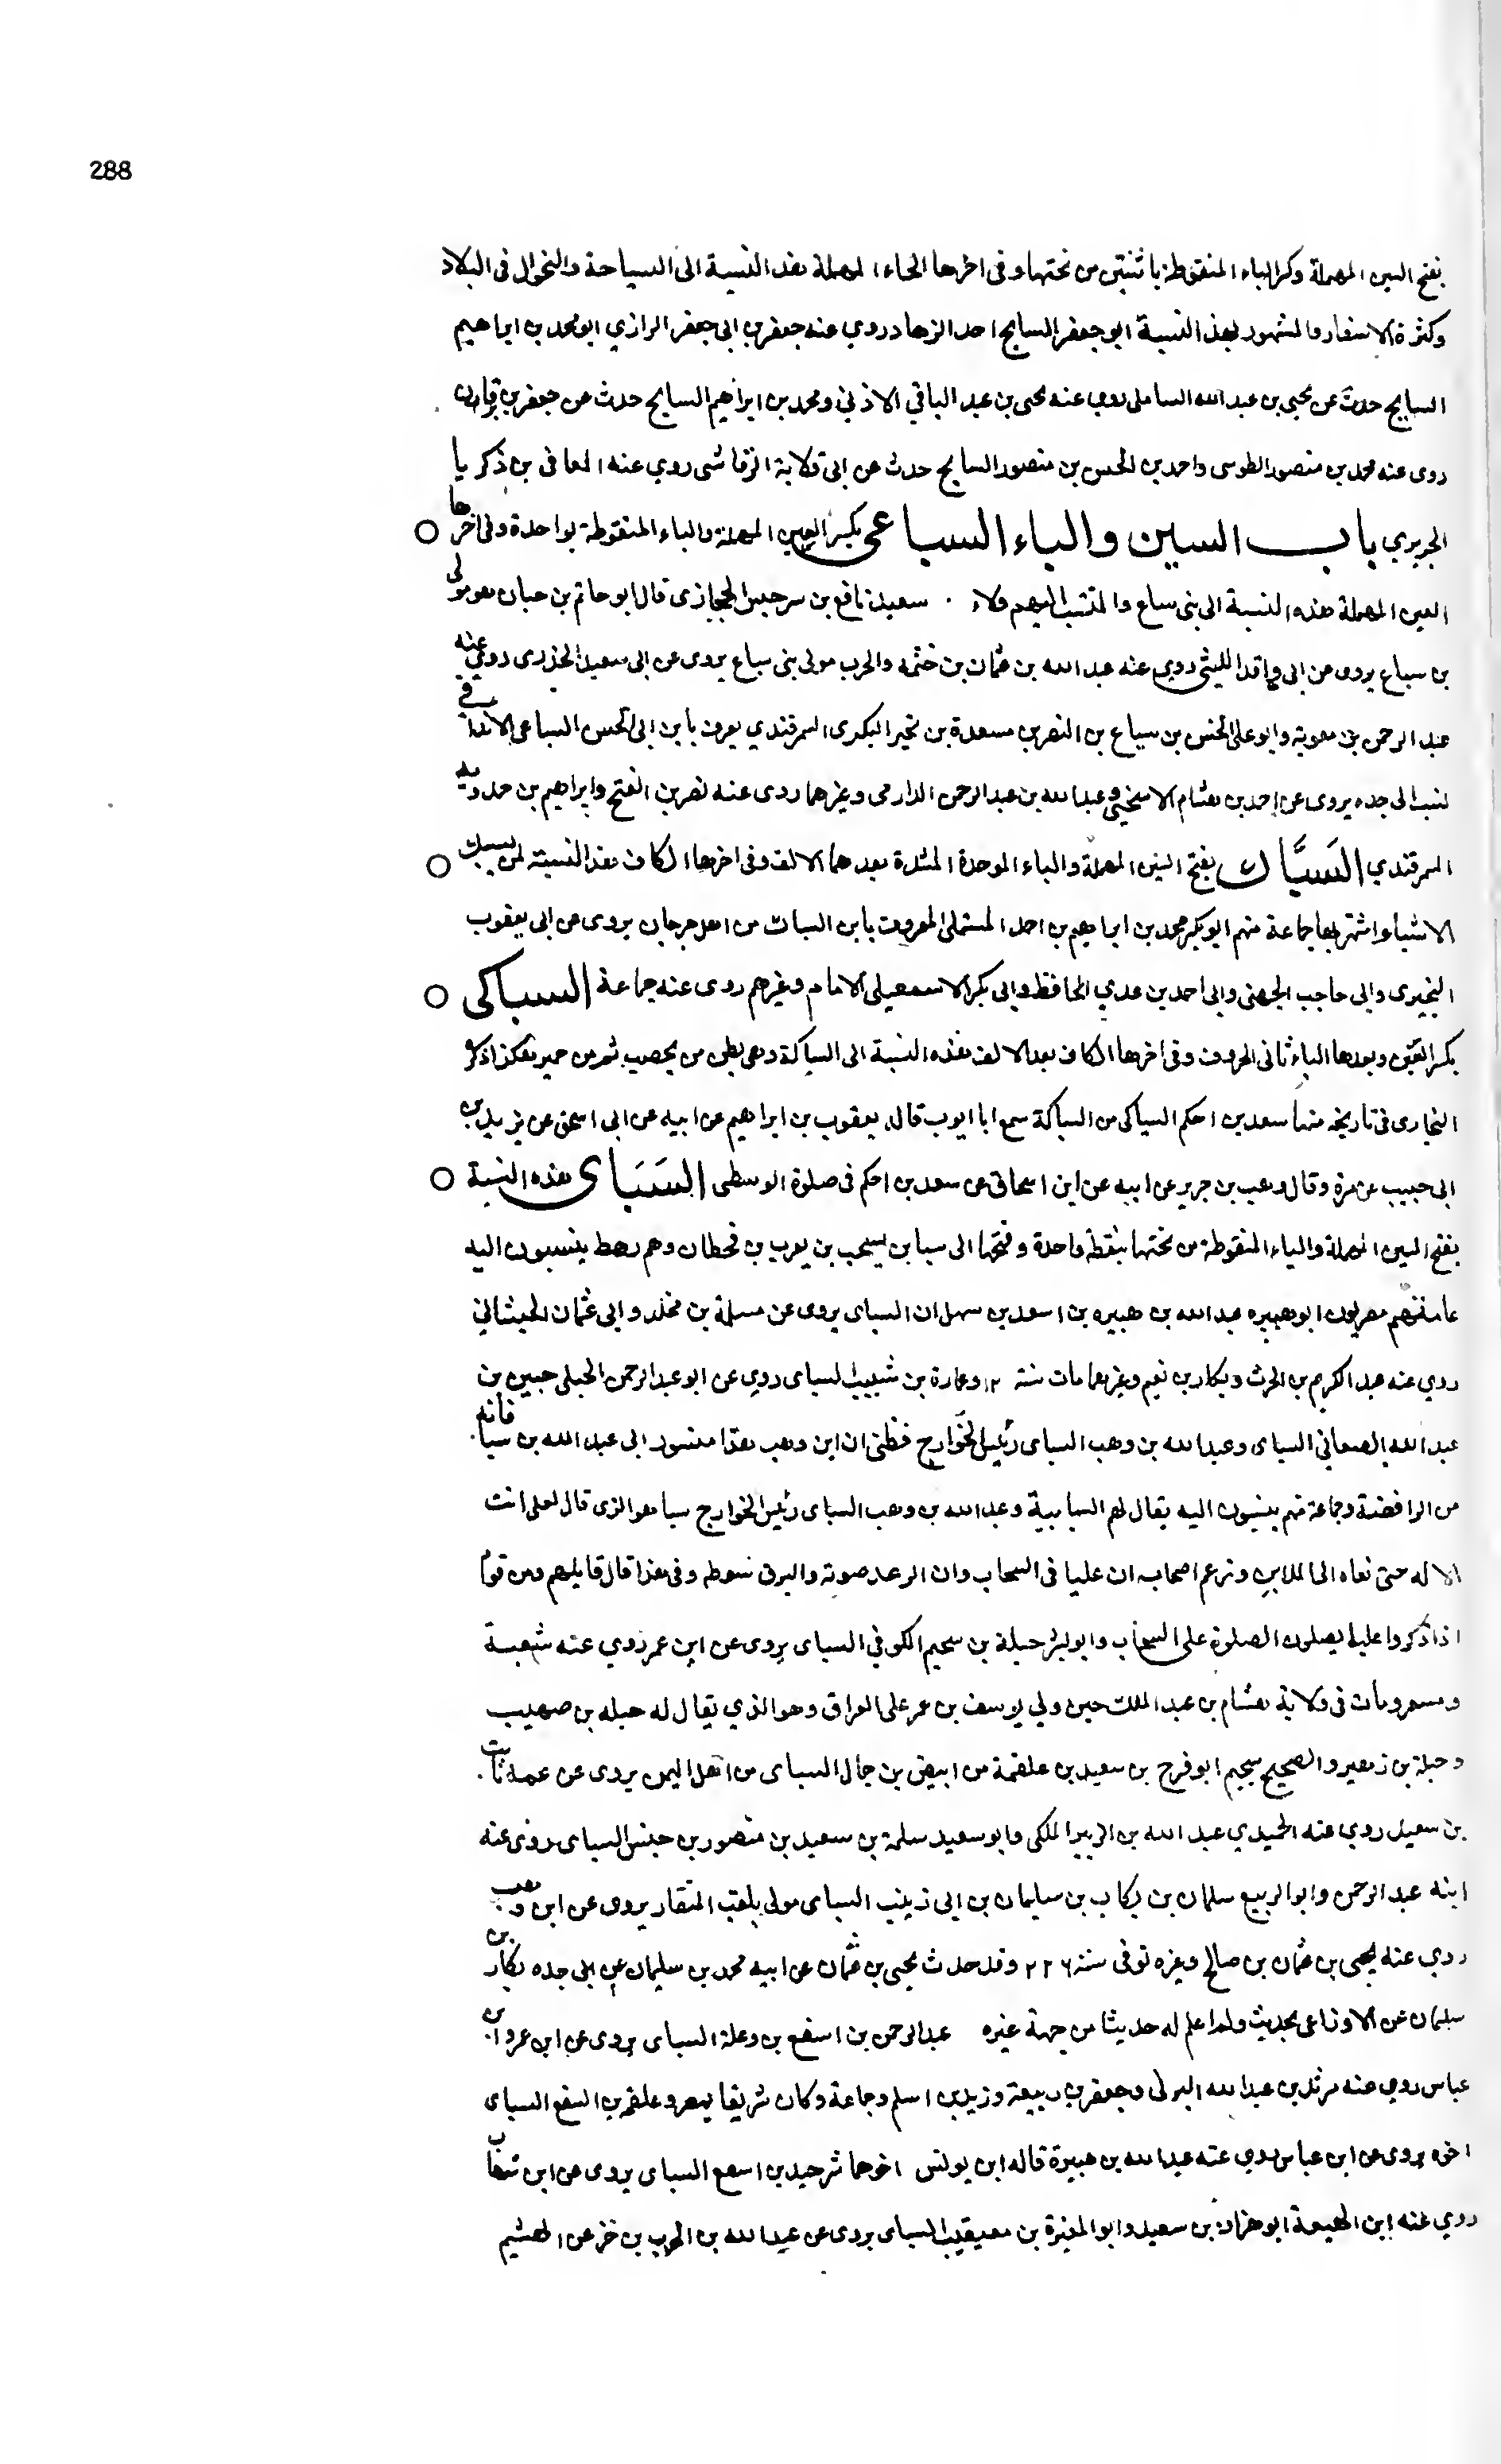 288
بفتح السين المهملة وكسر الياء المنقوطة باثنتين من تحتها وفى اخرها الحاء المهملة هذه النسبة الى السياحة والتجوال فى البلاد
وكثرة الاسفار والمشهور بهذه النسبة ابو جعفر السايح احد الزهاد روي عنه جعفر بن ابى جعفر الرازي ابو محمد بن ابراهيم
السايح حدث عن يحيى بن عبد الله الساملى روى عنه يحيى بن عبد الباقي الاذنى ومحمد بن ابراهيم السايح حدث عن جعفر بن برقان
روى عنه محمد بن منصور الطوسى واحمد بن الحسن بن منصور السايح حدث عن ابى قلابة الرقاشى روي عنه المعافى بن زكريا
الجريري باب السين والباء السباعى بكسر السين المهملة والباء المنقوطة بواحدة وفى اخرها
العين المهملة هذه النسبة الى بنى سباع والمنتسب اليهم ولاء سعيد نافع بن سرجس الحجازى قال ابو حاتم بن حبان هو مولى
بن سباع يروى عن ابى واقد الليثى روي عنه عبد الله بن عثمان بن خثيم والحرب مولى بنى سباع يروى عن ابى سعيد الخدرى روى عنه
عبد الرحمن بن معوية وابو على الحسن بن سباع بن النضر بن مسعدة بن بحير البكرى السمرقندي يعرف بابن ابى الحسن السباعى
نسب الى جده يروى عن احمد بن هشام الاشتيخنى وعبد الله بن عبد الرحمن الدارمى وغيرهما روى عنه نصر بن الفتح وابراهيم بن حمدويه
السمرقندي السَّبَّاك بفتح السين المهملة والباء الموحدة المشددة بعدهما الالف وفى اخرها الكاف هذه النسبة لمن يسبك
الاشيا واشتهر بها جماعة منهم ابو بكر محمد بن ابراهيم بن احمد المستملى المعروف بابن السباك من اهل جرجان يروى عن ابى يعقوب
البحيرى وابى حاجب الجهنى وابى احمد بن عدي الحافظ وابى بكر الاسمعيلى الامام وغيرهم روى عنه جماعة السباكى
بكسر السين وبعدها الباء ثانى الحروف وفى اخرها الكاف بعد الالف هذه النسبة الى السباكة وهى بطن من يحصب ثم من حمير هكذا ذكره
البخارى فى تاريخه منها سعد بن احكم السباكى من السباكة سمع ابا ايوب قاله يعقوب بن ابراهيم عن ابيه عن ابى اسحق عن يزيد بن
ابى حبيب عن مرة وقال وهب بن جرير عن ابيه عن ابن اسحاق عن سعد بن احكم فى صلوة الوسطى السَبَاى هذه النسبة
بفتح السين المهملة والباء المنقوطة من تحتها بنقطة واحدة وفتحها الى سبا بن يشجب بن يعرب بن قحطان وهم رهط ينسبون اليه
عامتهم مصريون ابو هبيره عبد الله بن هبيره بن اسعد بن سهلان السباى يروى عن مسلمة بن مخلد وابى عثمان الجيشانى
روي عنه عبد الكريم بن الحرث وبكار بن نعيم وغيرهما مات سنة وعمارة بن شبيب السباى روي عن ابو عبد الرحمن الحبلى حسين بن
عبد الله الصنعانى السباى وعبد الله بن وهب السباى رئيس الخوارج فظنى ان ابن وهب هذا منسوب الى عبد الله بن سبا فانه
من الرافضة وجماعة منهم ينسبون اليه يقال لهم السبابية وعبد الله بن وهب السباى رئيس الخوارج سبا هو الذى قال لعلى انت
الاله حتى نفاه الى المداين وزعم اصحابه ان عليا فى السحاب وان الرعد صوته والبرق سوطه وفى هذا قال قايلهم ومن قوم
اذا ذكروا عليا يصلون الصلوة على السحاب وابو لبئر جبلة بن سحيم الكوفي السباى يروى عن ابن عمر روي عنه شعبة
ومسعر ومات فى ولاية هشام بن عبد الملك حين ولي يوسف بن عمر على العراق وهو الذي يقال له جبله بن صهيب
وجبلة بن زهير والصحيح سحيم ابو فرج بن سعيد بن علقمة من ابيض بن حمال السباى من اهل اليمن يروى عن عمه ثابت
بن سعيد روي عنه الحميدي عبد الله بن الزبير المكى وابو سعيد سلمة بن سعيد بن منصور بن حنش السباى روى عنه
ابنه عبد الرحمن وابو الربيع سلمان بن بكار بن سليمان بن ابى زينب السباى مولى يلقب المنقار يروى عن ابن وهب
روي عنه يحيى بن عثمان بن صالح وغيره توفى سنة ٢٢٦ وقد حدث يحيى بن عثمان عن ابيه محمد بن سليمان عن ابى جده بكار بن
سلمان عن الاوزاعى بحديث ولم اعلم له حديثا من جهة غيره عبد الرحمن بن اسفع بن وعلة السباى يروى عن ابن عمر وابن
عباس روي عنه مرثد بن عبد الله اليزنى وجعفر بن ربيعة وزيد بن اسلم وجماعة وكان شريفا بمصر وعلقمة بن اسفع السباى
اخوه يروى عن ابن عباس روي عنه عبد الله بن هبيرة قاله ابن يونس اخوهما شرحبيل بن اسفع السباى يروى عن ابن شهاب
روي عنه ابن لهيعة ابو هزان بن سعيد وابو المغيرة بن معيقيب السباى يروى عن عبد الله بن الحرب بن جزء عن الهشيم